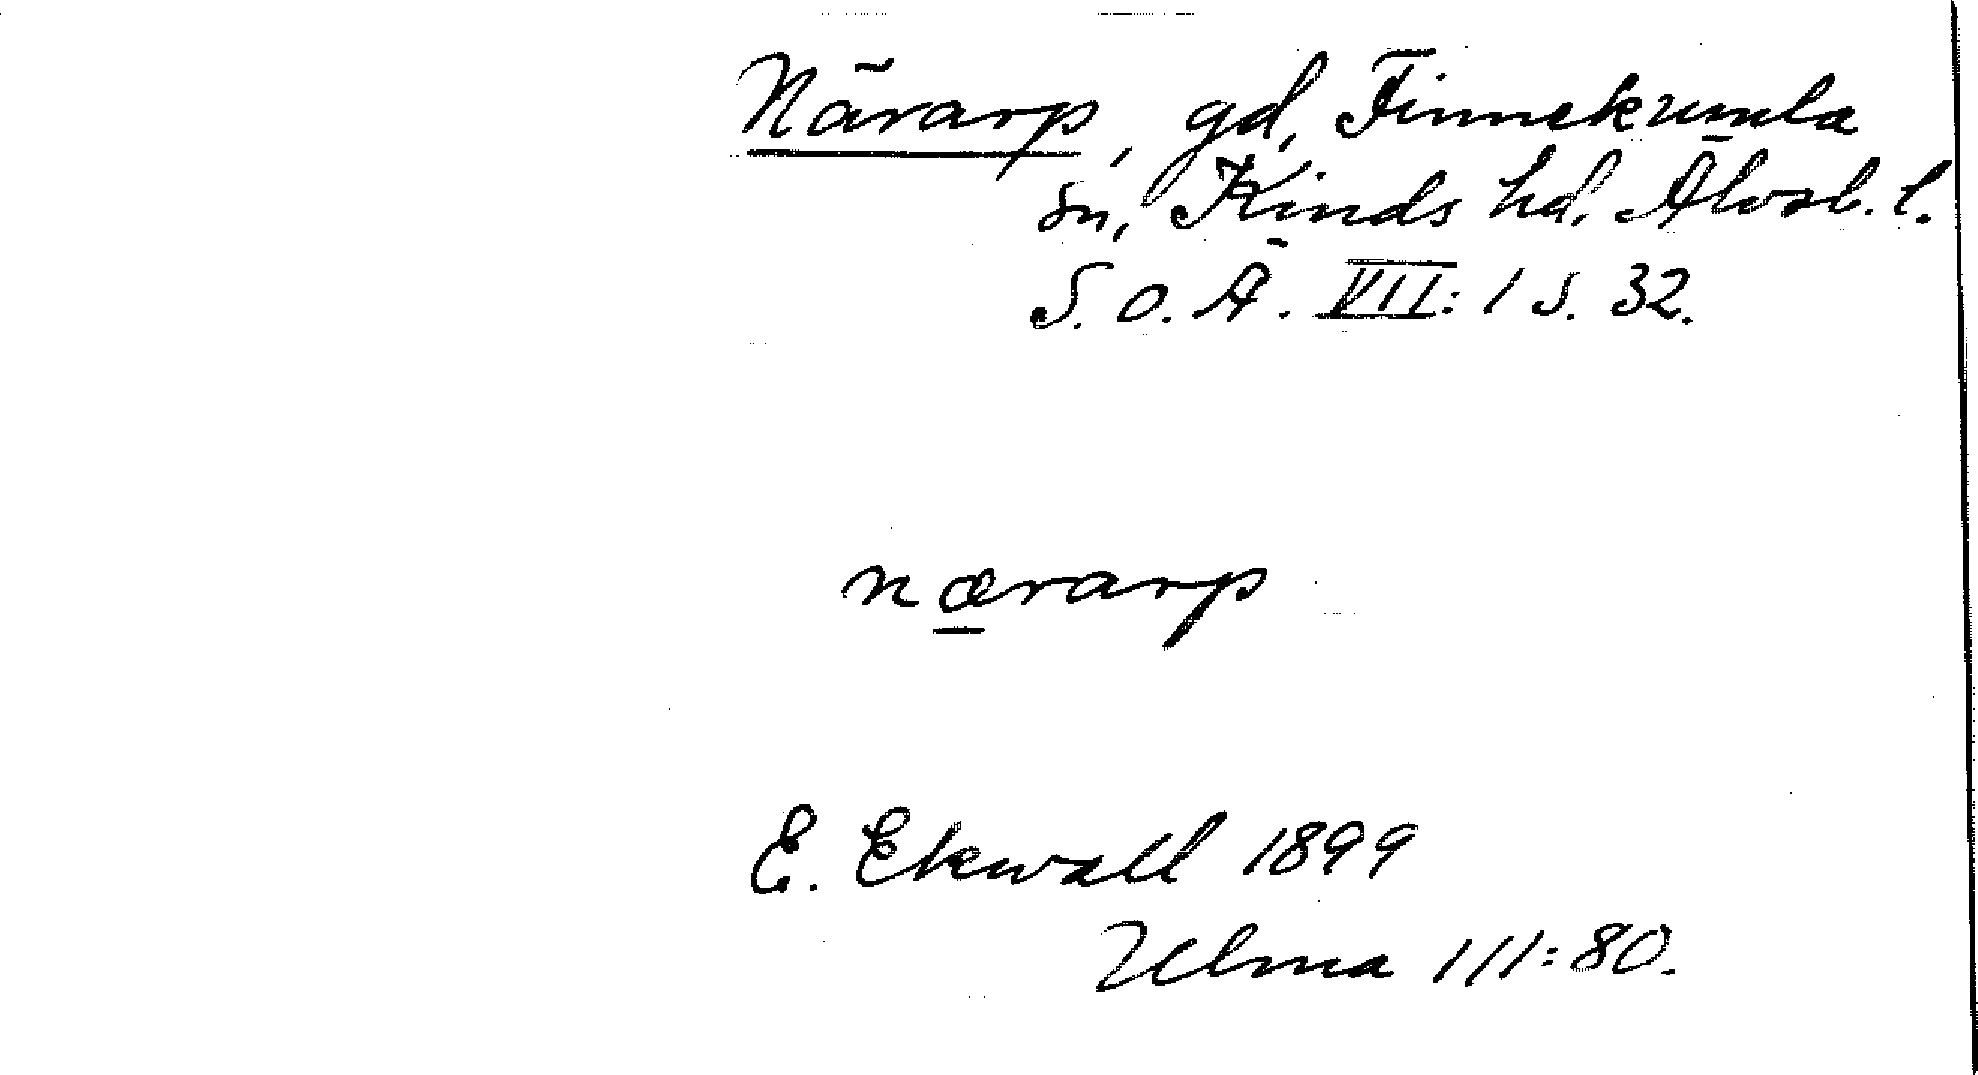 Närarp, gd, Finnekumla
sn, Kinds hd. Älvsb. l.
S. O. Ä. VII: 1 s. 32.
nærarp
E. Ekwall 1899
Ulma 111:80.